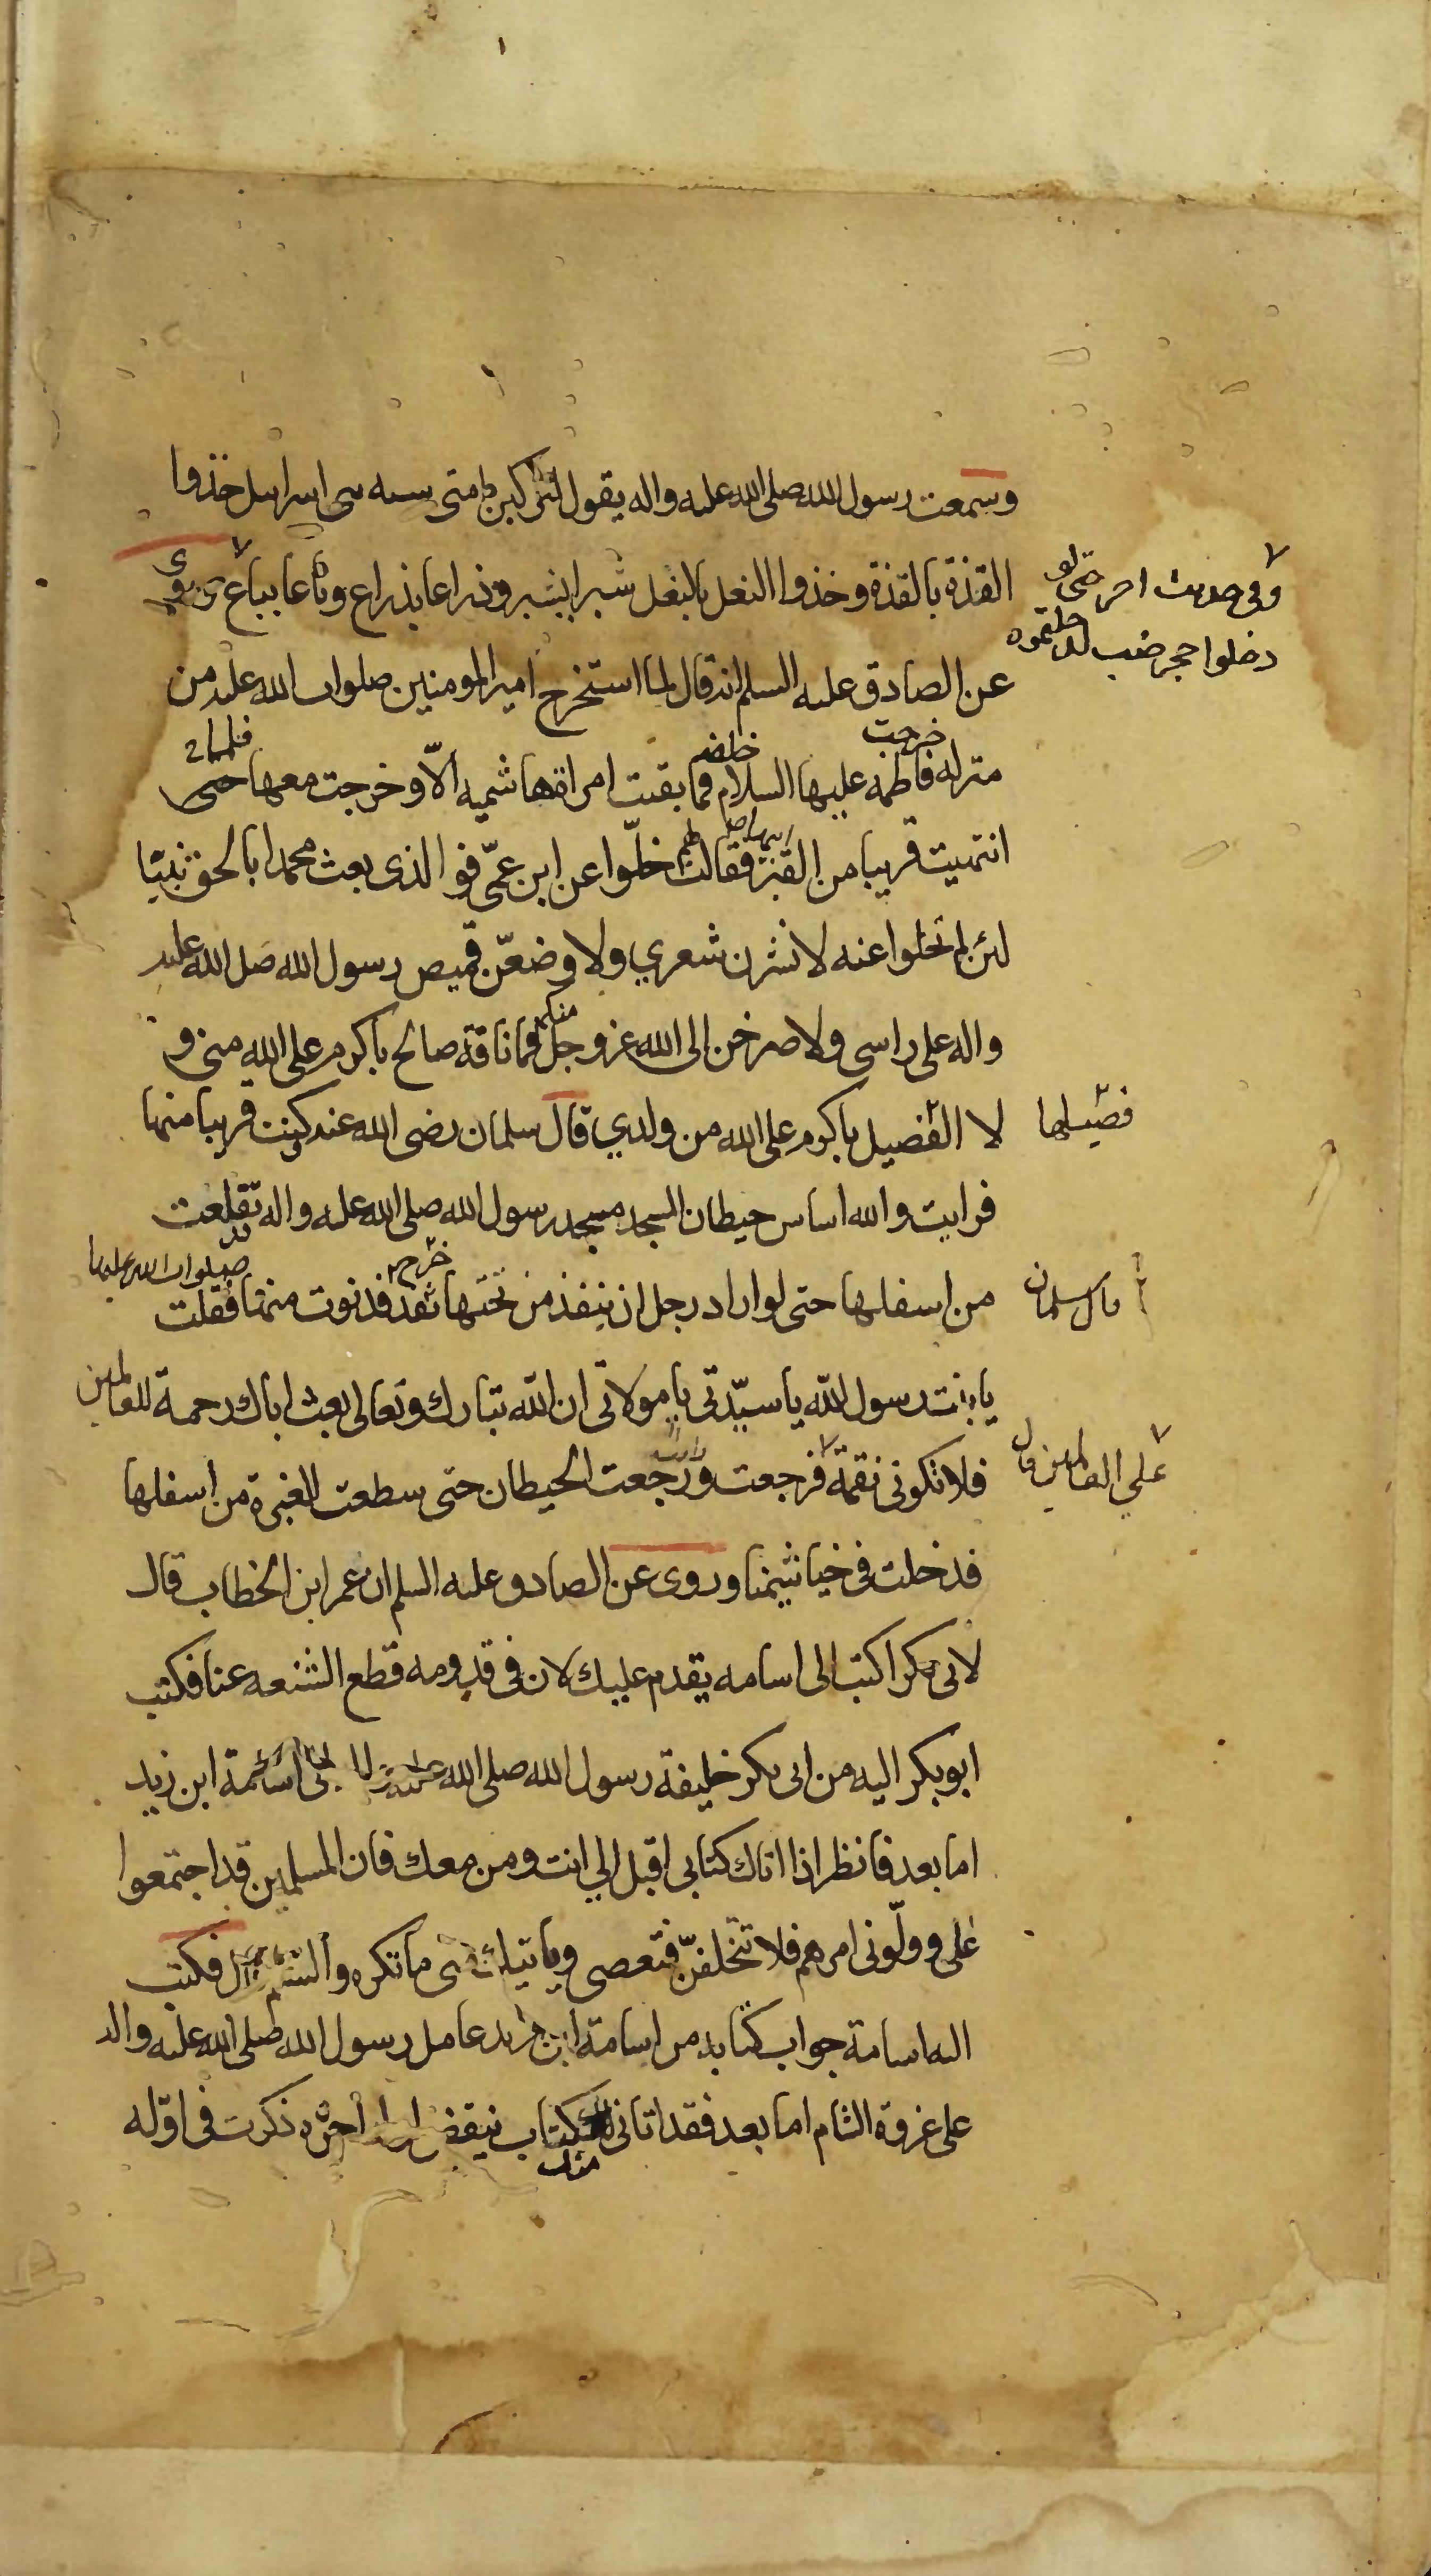 وسمعت رسول الله صلى الله عليه واله يقول لتركبن امتى سنه بنى اسرايل حذوا
القذة بالقذة وخذوا النعل بالنعل شبرا بشبر وذراعا بذراع وباعا بباع وروى
وفى حديث اخر حتى لو
دخلوا حجر ضب لدخلتموه
عن الصادق عليه السلم انه قال لما استخرج امير المومنين صلوات الله عليه من
خرجت خلفه فلما
منزله فاطمه عليها السلام فما بقيت امراة هاشميه الّا وخرجت معها حتى
انتهيت قريبا من القبر فقالت خلّوا عن ابن عمّى فو الذى بعث محمدا بالحق نبيّا
لئن لم تخلوا عنه لانشرن شعري ولاوضعّن قميص رسول الله صلى الله عليه
واله على راسى ولاصرخن الى الله عز وجل فما ناقة صالح باكرم على الله منى و
منكم
لا الفصيل باكرم على الله من ولدي قال سلمان رضى الله عنه كنت قريبا منها
فصيلها
فرايت والله اساس حيطان المسجد مسجد رسول الله صلى الله عليه واله تقلعت
من اسفلها حتى لو اراد رجل ان ينفذ من تحتها نفذ فدنوت منها فقلت
قال سلمان
خرج
صلوات الله عليها
يا بنت رسول الله يا سيّدتى يا مولاتى ان الله تبارك وتعالى بعث اباك رحمة للعالمين
فلا تكونى نقمة فرجعت ورجعت الحيطان حتى سطعت الغبرة من اسفلها
على العالمين قال
فدخلت فى خياشيمنا وروى عن الصادق عليه السلم ان عمر ابن الخطاب قال
لابى بكر اكتب الى اسامه يقدم عليك لان فى قدومه قطع الشنعه عنا فكتب
ابو بكر اليه من ابى بكر خليفة رسول الله صلى الله عليه الى اسامة ابن زيد
اما بعد فانظر اذا اتاك كتابى اقبل الي انت ومن معك فان المسلمين قد اجتمعوا
على وولّونى امرهم فلا تتخلفنّ فتعصى وياتيك منى ما تكره والسلام فكتب
اليه اسامة جواب كتابه من اسامة ابن زيد عامل رسول الله صلى الله عليه واله
على غزوة الشام اما بعد فقد اتانى كتاب ينقض اوله اخره ذكرت فى اوّله
منك